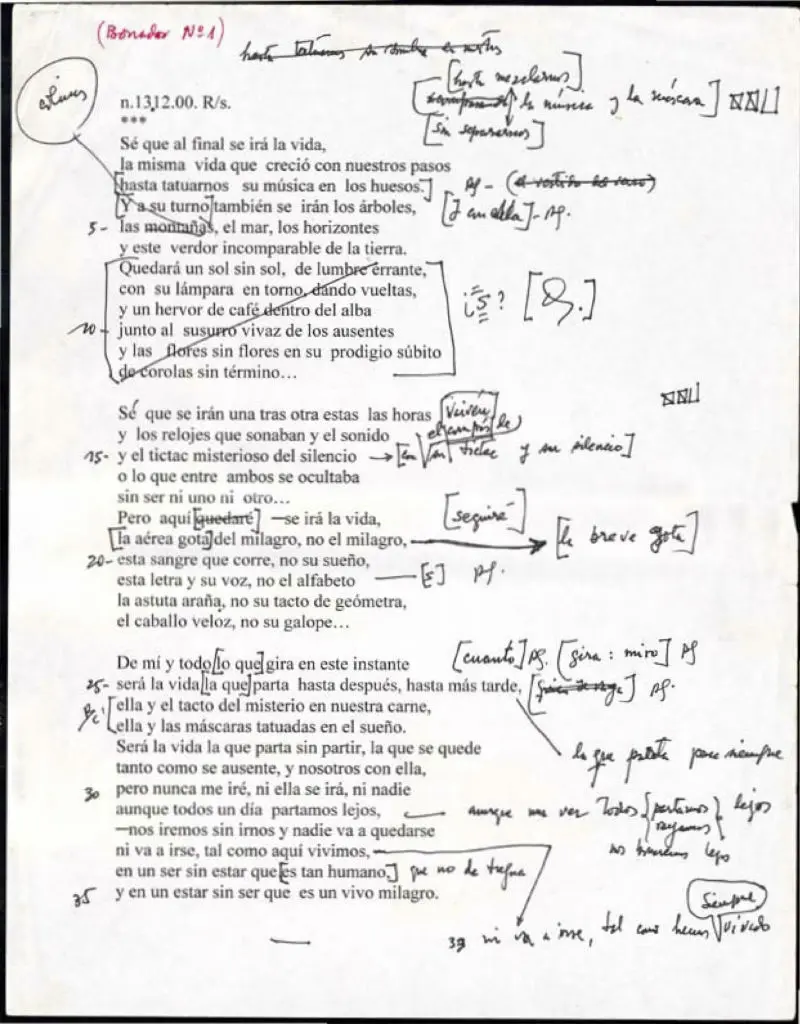 (Borrador Nº1)
hasta tatuarnos su
[hasta mezclarnos]
la música y la máscara]
[Sin separarnos]
n.13,12.00. R/s.
***
Sé que al final se irá la vida,
la misma vida que creció con nuestros pasos
[hasta tatuarnos su música en los huesos.]
[Y a su turno] también se irán los árboles, [Y en ella]-
5- las montañas, el mar, los horizontes
y este verdor incomparable de la tierra.
Quedará un sol sin sol, de lumbre errante,
con su lámpara en torno, dando vueltas,
y un hervor de café dentro del alba
10- junto al susurro vivaz de los ausentes
y las flores sin flores en su prodigio súbito
de corolas sin término...
¿S? [&.]
Sé que se irán una tras otra estas las horas
y los relojes que sonaban y el sonido
15- y el tictac misterioso del silencio y su silencio]
o lo que entre ambos se ocultaba
sin ser ni uno ni otro...
Pero aquí [quedaré] —se irá la vida, [seguiré]
[la aérea gota] del milagro, no el milagro, [la breve gota]
20- esta sangre que corre, no su sueño,
esta letra y su voz, no el alfabeto [s]
la astuta araña, no su tacto de geómetra,
el caballo veloz, no su galope...
De mí y todo [lo que] gira en este instante [cuanto] [gira : miro]
25- será la vida [la que] parta hasta después, hasta más tarde,
[ella y el tacto del misterio en nuestra carne,
ella y las máscaras tatuadas en el sueño.
Será la vida la que parta sin partir, la que se quede
la que parta para siempre
tanto como se ausente, y nosotros con ella,
30 pero nunca me iré, ni ella se irá, ni nadie
aunque todos un día partamos lejos, aunque una vez todos {partamos} lejos
{vayamos}
—nos iremos sin irnos y nadie va a quedarse
nos iremos lejos
ni va a irse, tal como aquí vivimos,
en un ser sin estar que [es tan humano,] que no da tregua
35 y en un estar sin ser que es un vivo milagro.
Siempre
33 ni va a irse, tal como hemos vivido